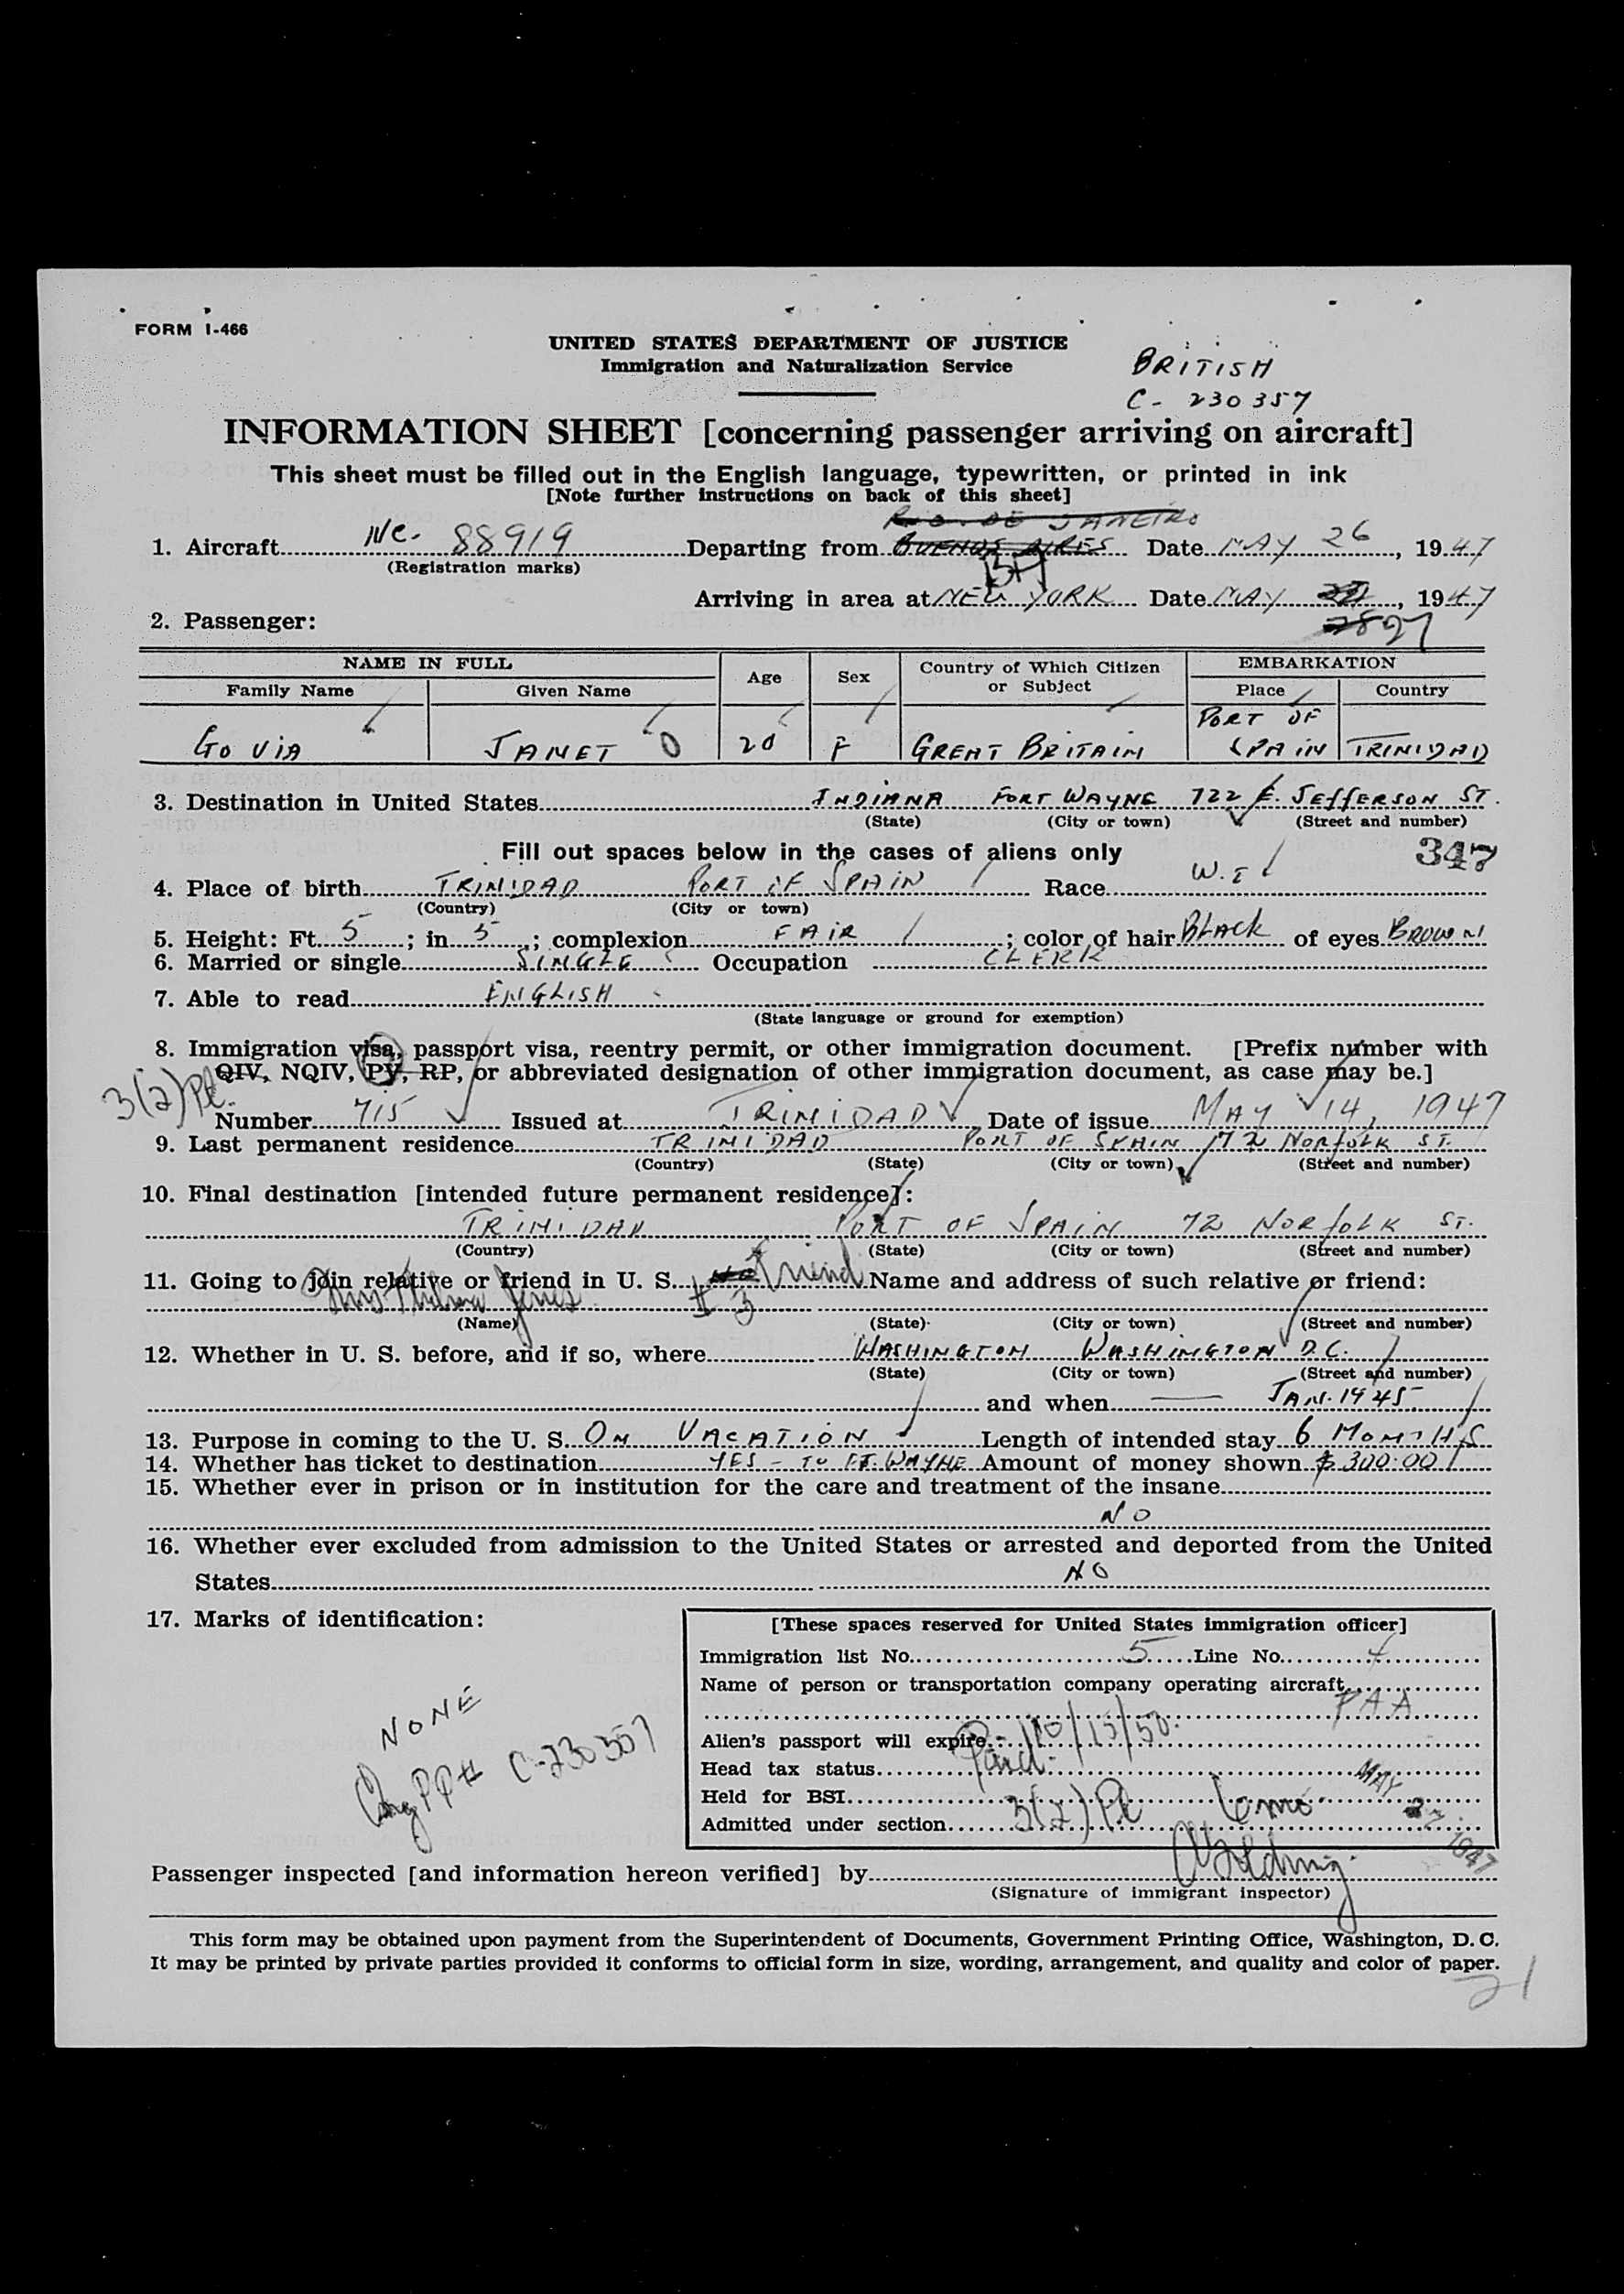 FORM I-466
UNITED STATES DEPARTMENT OF JUSTICE
Immigration and Naturalization Service
BRITISH
C- 230357
INFORMATION SHEET [concerning passenger arriving on aircraft]
This sheet must be filled out in the English language, typewritten, or printed in ink
[Note further instructions on back of this sheet]
RIO DE JANEIRO
1. Aircraft NC. 88919 Departing from BUENOS AIRES Date MAY 26, 1947
(Registration marks)
Arriving in area at NEW YORK Date MAY 27, 1947
2. Passenger:
NAME IN FULL Age Sex Country of Which Citizen or Subject EMBARKATION
Family Name Given Name Place Country
GOVIA JANET O 20 F GREAT BRITAIN PORT OF SPAIN TRINIDAD
3. Destination in United States INDIANA FORT WAYNE 722 E. JEFFERSON ST.
(State) (City or town) (Street and number)
Fill out spaces below in the cases of aliens only 347
4. Place of birth TRINIDAD PORT OF SPAIN Race W.I
(Country) (City or town)
5. Height: Ft. 5; in 5; complexion FAIR; color of hair BLACK of eyes BROWN
6. Married or single SINGLE Occupation CLERK
7. Able to read ENGLISH
(State language or ground for exemption)
8. Immigration visa, passport visa, reentry permit, or other immigration document. [Prefix number with
QIV, NQIV, PV, RP, or abbreviated designation of other immigration document, as case may be.]
3(2) Pl.
Number 715 Issued at TRINIDAD Date of issue MAY 14, 1947
9. Last permanent residence TRINIDAD PORT OF SPAIN 72 NORFOLK ST.
(Country) (State) (City or town) (Street and number)
10. Final destination [intended future permanent residence]:
TRINIDAD PORT OF SPAIN 72 NORFOLK ST.
(Country) (State) (City or town) (Street and number)
11. Going to join relative or friend in U. S. friend Name and address of such relative or friend:
# 3
(Name) (State) (City or town) (Street and number)
12. Whether in U. S. before, and if so, where WASHINGTON WASHINGTON D.C.
(State) (City or town) (Street and number)
and when JAN. 1945
13. Purpose in coming to the U. S. ON VACATION Length of intended stay 6 MONTHS
14. Whether has ticket to destination YES - TO FT. WAYNE Amount of money shown $300.00
15. Whether ever in prison or in institution for the care and treatment of the insane
NO
16. Whether ever excluded from admission to the United States or arrested and deported from the United
States NO
17. Marks of identification:
NONE
PP# C-230357
[These spaces reserved for United States immigration officer]
Immigration list No. 5 Line No. 4
Name of person or transportation company operating aircraft
PAA
Alien's passport will expire 10/15/50.
Head tax status Paid
Held for BSI
Admitted under section 3(2) Pl 6 mos. MAY 27 1947
Passenger inspected [and information hereon verified] by
(Signature of immigrant inspector)
This form may be obtained upon payment from the Superintendent of Documents, Government Printing Office, Washington, D. C.
It may be printed by private parties provided it conforms to official form in size, wording, arrangement, and quality and color of paper.
21